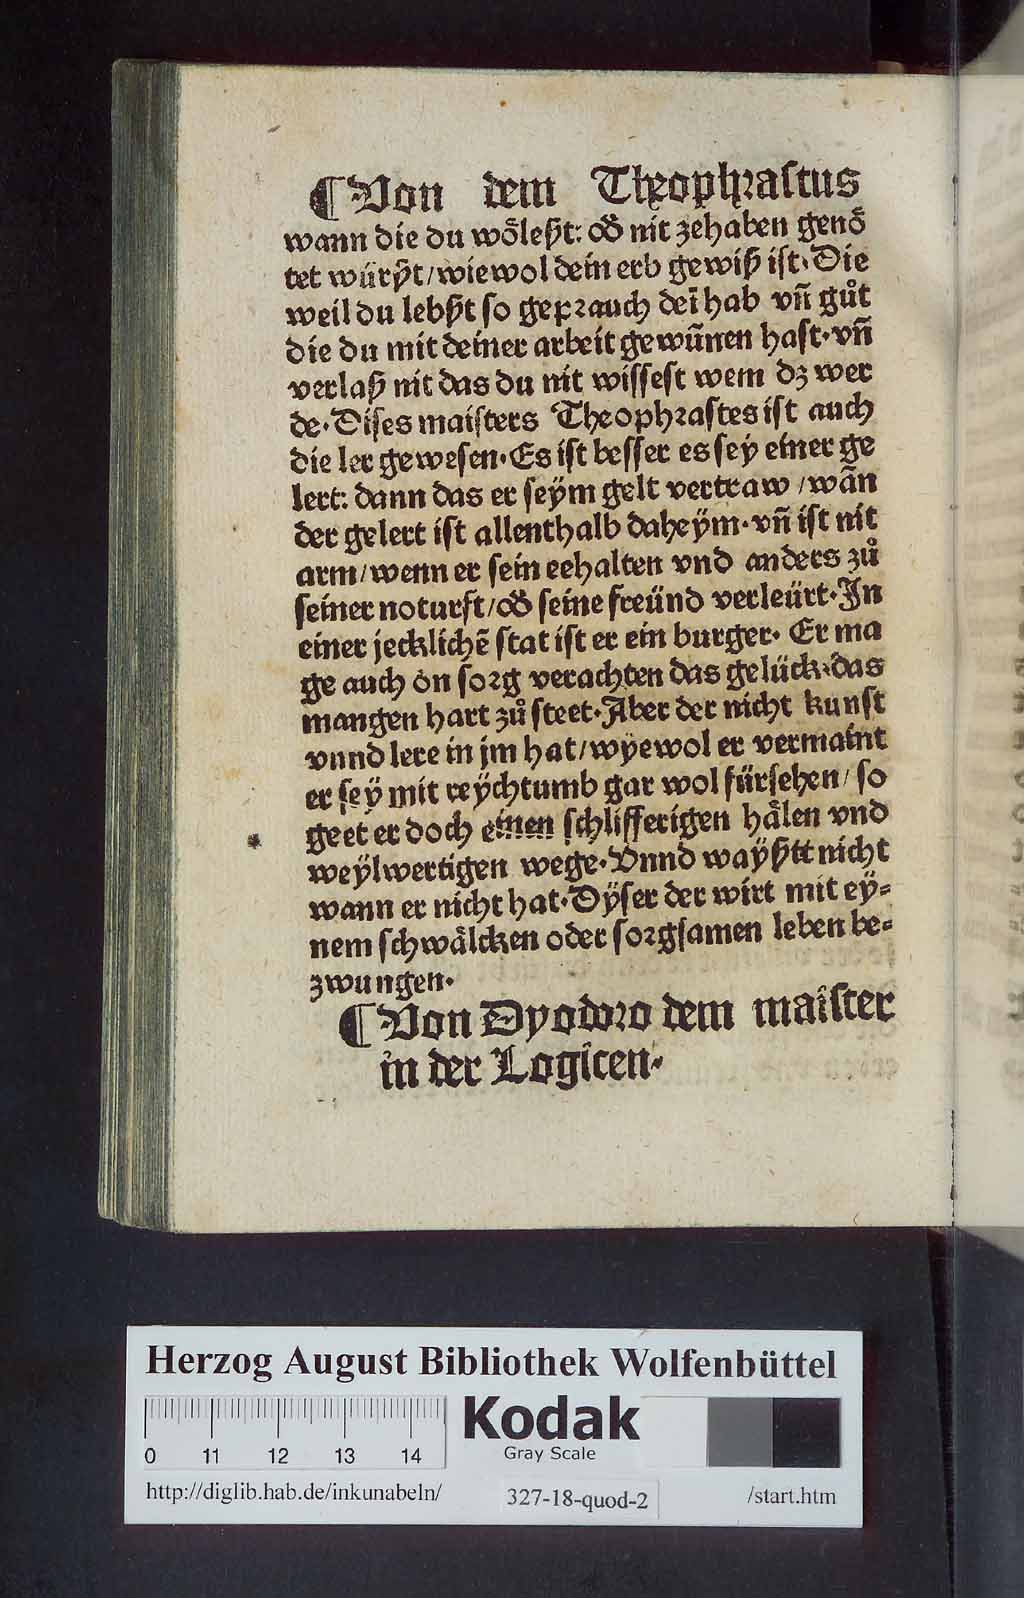 ¶ Von dem Theophrastus
wann die du wőleßt: oď nit zehaben genő
tet würßt/wiewol dein erb gewiß ist. Die
weil du lebßt so geprauch dei̅ hab vn̅ gůt
die du mit deiner arbeit gewu̅nen hast. vn̅
verlaß nit das du nit wissest wem dz wer
de. Dises maisters Theophrastes ist auch
die ler gewesen. Es ist besser es sey einer ge
lert: dann das er seӱm gelt vertraw/wa̅n
der gelert ist allenthalb daheӱm. vn̅ ist nit
arm/wenn er sein eehalten vnd anders zů
seiner noturft/oď seine freünd verleürt. In
einer jeckliche̅ stat ist er ein burger. Er ma
ge auch on sorg verachten das gelück, das
mangen hart zů steet. Aber der nicht kunst
vnnd lere in jm hat/wӱewol er vermaint
er seӱ mit reӱchtumb gar wol fürsehen/ so
geet er doch einen schlifferigen hålen vnd
weӱlwertigen wege. Vnnd waӱßtt nicht
wann er nicht hat. Dӱser der wirt mit eӱ=
nem schwålcken oder sorgsamen leben be=
zwungen.
¶ Von Dyodoro dem maister
in der Logicen.
Herzog August Bibliothek Wolfenbüttel
0 11 12 13 14
Kodak
Gray Scale
http://diglib.hab.de/inkunabeln/ 327-18-quod-2 /start.htm